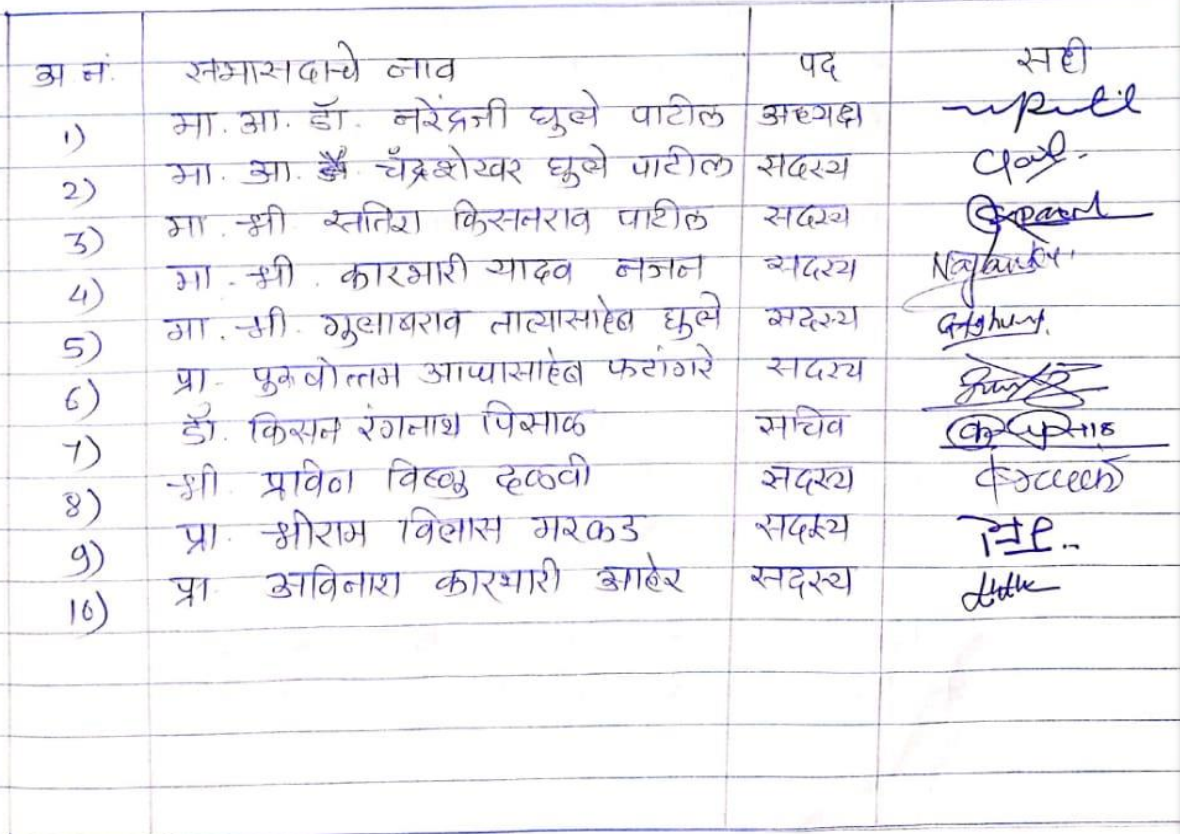 अ.नं. सभासदाचे नाव पद सही
1) मा. आ. डॉ. नरेंद्रजी घुले पाटील अध्यक्ष
2) मा. आ. चँद्रशेखर घुले पाटील सदस्य
3) मा. श्री सतिश किसनराव पाटील सदस्य
4) मा. श्री. कारभारी यादव नजन सदस्य
5) मा. श्री. गुलाबराव तात्यासाहेब घुले सदस्य
6) प्रा. पुरुषोत्तम आप्पासाहेब फटांगरे सदस्य
7) डॉ. किसन रंगनाथ पिसाळ सचिव
8) श्री. प्रविण विष्णू दळवी सदस्य
9) प्रा. श्रीराम विलास गरकड सदस्य
10) प्रा. अविनाश कारभारी आहेर सदस्य